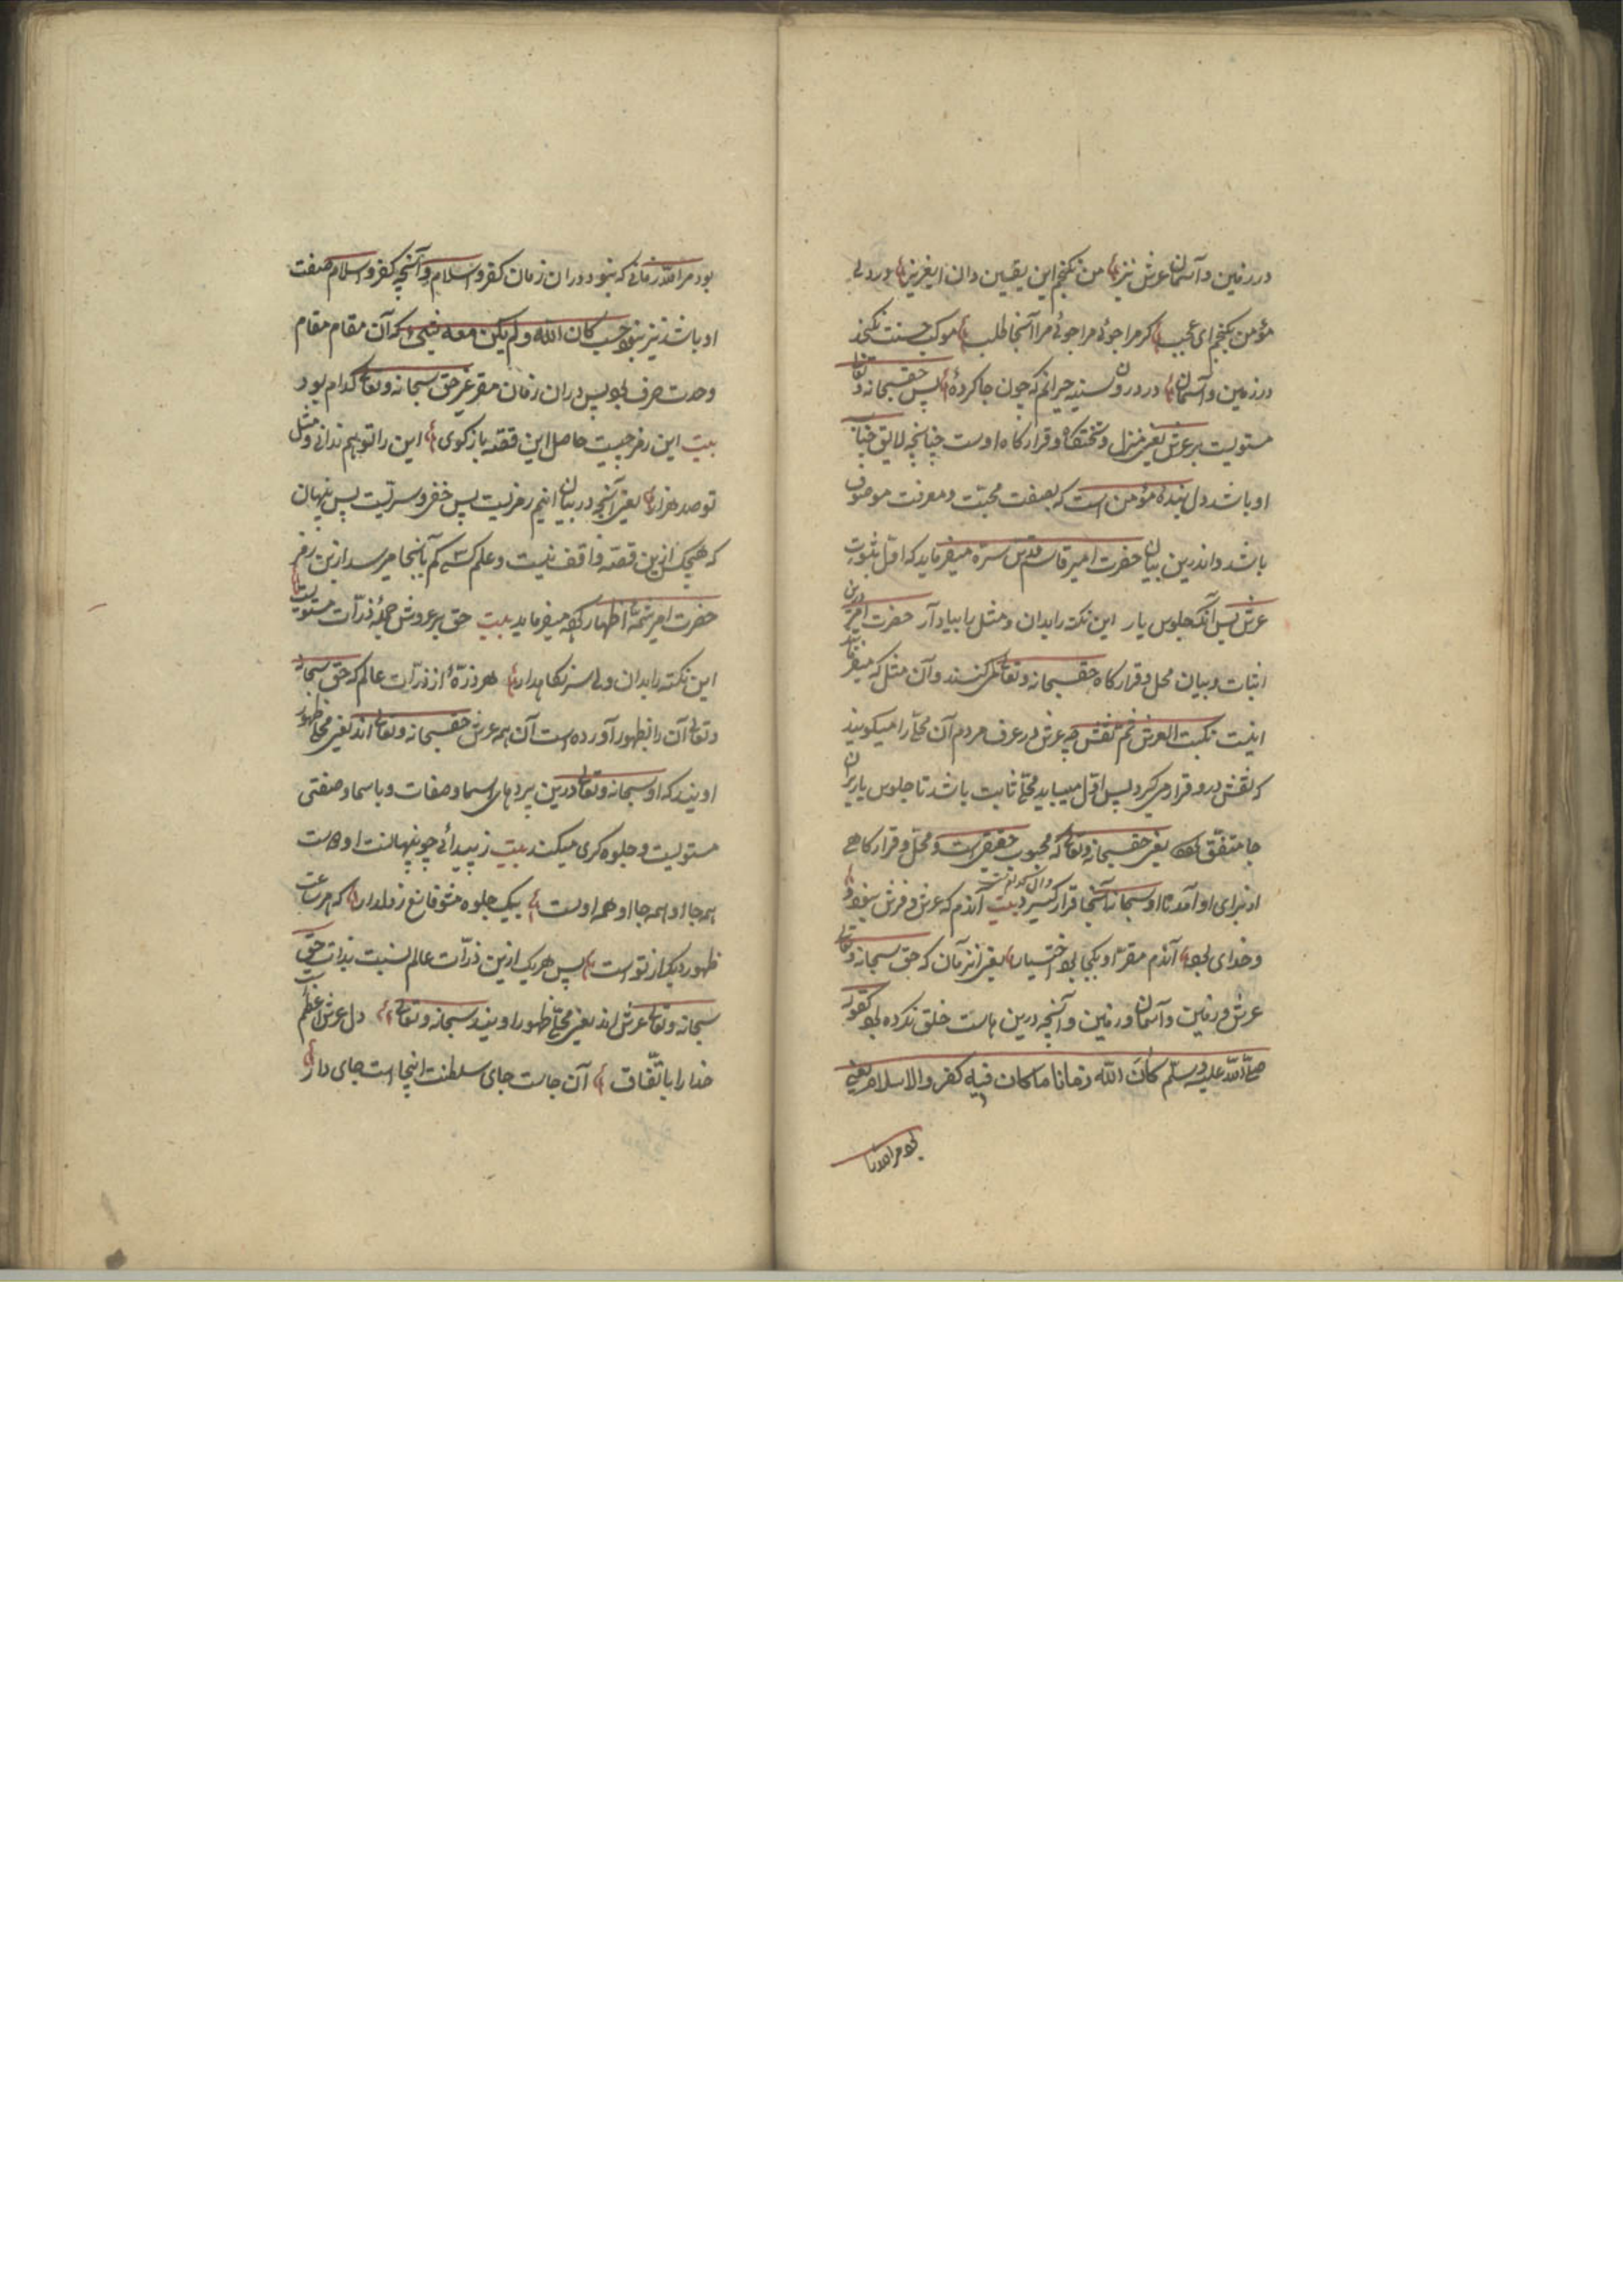 در زمین و آسمان عرش نیز من نکنجم این یقین دان ای عزیز در دل
مؤمن بکنجم ای عجب کر مرا جوئی مرا آنجا طلب حسنت نکنجد
در زمین و آسمان در درون سینه حیرانم که چون جا کردهٔ پس حق سبحانه و تعالی
مستویست بر عرش یعنی منزل و تختکاه و قرارکاه اوست چنانچه لایق جناب
او باشد دل بندهٔ مؤمن است که بصفت محبّت و معرفت موصوف
باشد و اندرین بیان حضرت امیر قاسم قدس سرّه میفرماید که اوّل ثبوت
عرش پس آنکه جلوس یار این نکته را بدان و مثل را بیاد آر حضرت امیر درین
اثبات و بیان محل و قرارکاه حق سبحانه و تعالی میکنند و آن مثل که میفرماید
اینست ثبت العرش ثم نقش چه عرش در عرف مردم آن محل را میکویند
که نقش درو قرار میکیرد پس اوّل میباید محل ثابت باشد تا جلوس یار بران
جا متفق بود یعنی حق سبحانه و تعالی که محبوب حقیقی است و محل و قرارکاهی
از برای او آمد تا او سبحانه آنجا قرار کیرد بیت آندم که عرش و فرش نبود
و خدای بود آندم مقرّ او بکجا بود یعنی آنزمان که حق سبحانه و تعالی
عرش و زمین و آسمان و زمین و آنچه درین هاست خلق نکرده بود کقوله
صلّی الله علیه وسلّم کان الله زمانا ما کان فیه کفر والاسلام یعنی
بود مر الله را
بود مر الله را زمانی که نبود دران زمان کفر و اسلام و آنچه کفر و اسلام صفت
او باشد نیز نبود حسب کان الله ولم یکن معه شیء که آن مقام مقام
وحدت صرف بود پس دران زمان مقر عز حق سبحانه و تعالی کدام بود
بیت این رمز چیست حاصل این قصّه باز کوی این را تو هم ندانی و مثل
تو صد هزار یعنی آنچه در بیان اینم رمزیست بس خفی و سریست بس پنهان
که هیچکس ازین قصّه واقف نیست و علم کسی کم بآنجا میرسد ازین رمز
حضرت امیر شمّهٔ اظهار کرده میفرماید بیت حق بر عروش جملهٔ ذرّات مستویست
این نکته را بدان ولی سر نکاهدار هر ذرّهٔ از ذرّات عالم که حق سبحانه
و تعالی آن را بظهور آورده است آن همه عرش حق سبحانه و تعالی اند یعنی محل ظهور
اویند که او سبحانه و تعالی درین پردهای اسما و صفات و با سما و صفتی
مستویست و جلوه کری میکند بیت ز پیدائی چو پنهانست او
همه جا او همه جا او همه اوست بیک جلوه مشو قانع ز دلدار که هر ساعت
ظهور دیکر از توست پس هر یک ازین ذرّات عالم نسبت بذات حق
سبحانه و تعالی عرش اند یعنی محل ظهور اویند سبحانه و تعالی بیت دل عرش اعظم
خدا را باتّفاق آن جاست جای سلطنت اینجاست جای دار